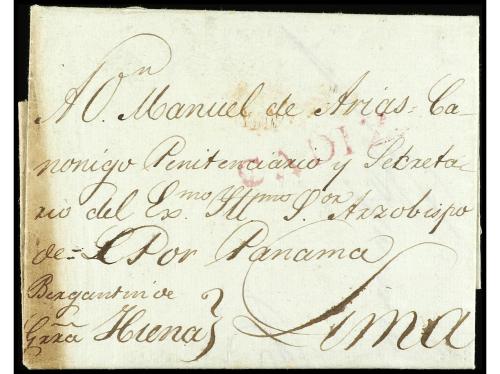 A Dn. Manuel de Arias, Ca-
CADIZ
nonigo Penitenciario y Secreta-
rio del Exmo Yllmo Sor Arzobispo
de = Por Panama
Bergantin de
Grra Hiena } Lima